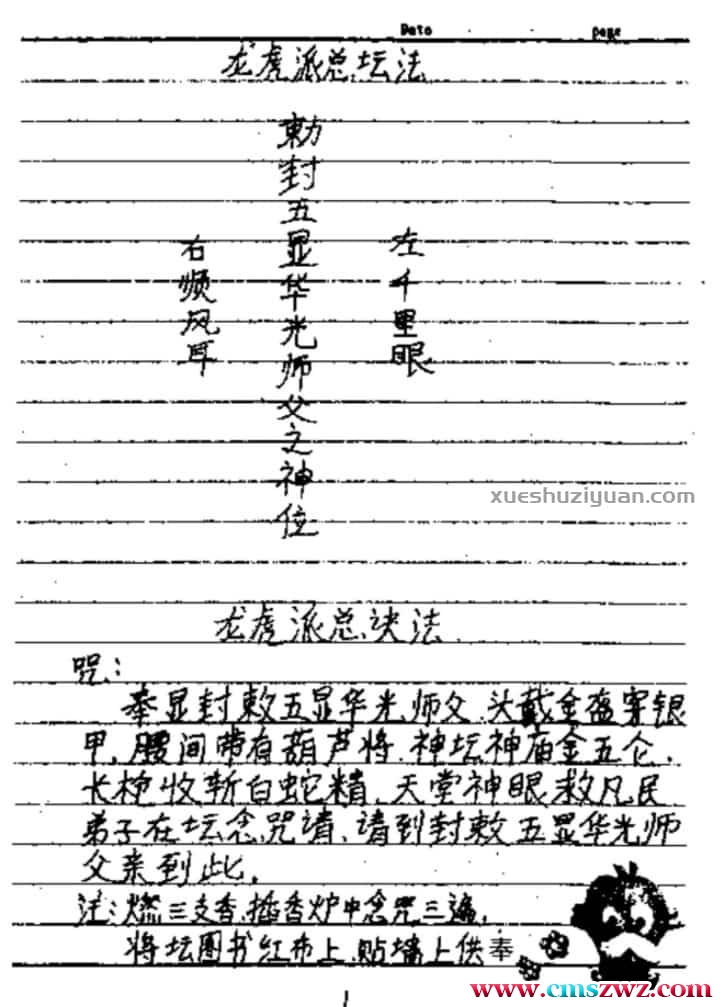 Date page
龙虎派总坛法
勅封五显华光师父之神位
左千里眼
右顺风耳
xueshuziyuan.com
龙虎派总诀法
咒:
奉显封敕五显华光师父.头戴金盔穿银
甲,腰间带有葫芦将.神坛神庙金五仑,
长枪收斩白蛇精,天堂神眼救凡民
弟子在坛念咒請,请到封敕五显华光师
父亲到此.
注:燃三支香,插香炉中念咒三遍,
将坛图书红布上,贴墙上供奉
www.cmszwz.com
1